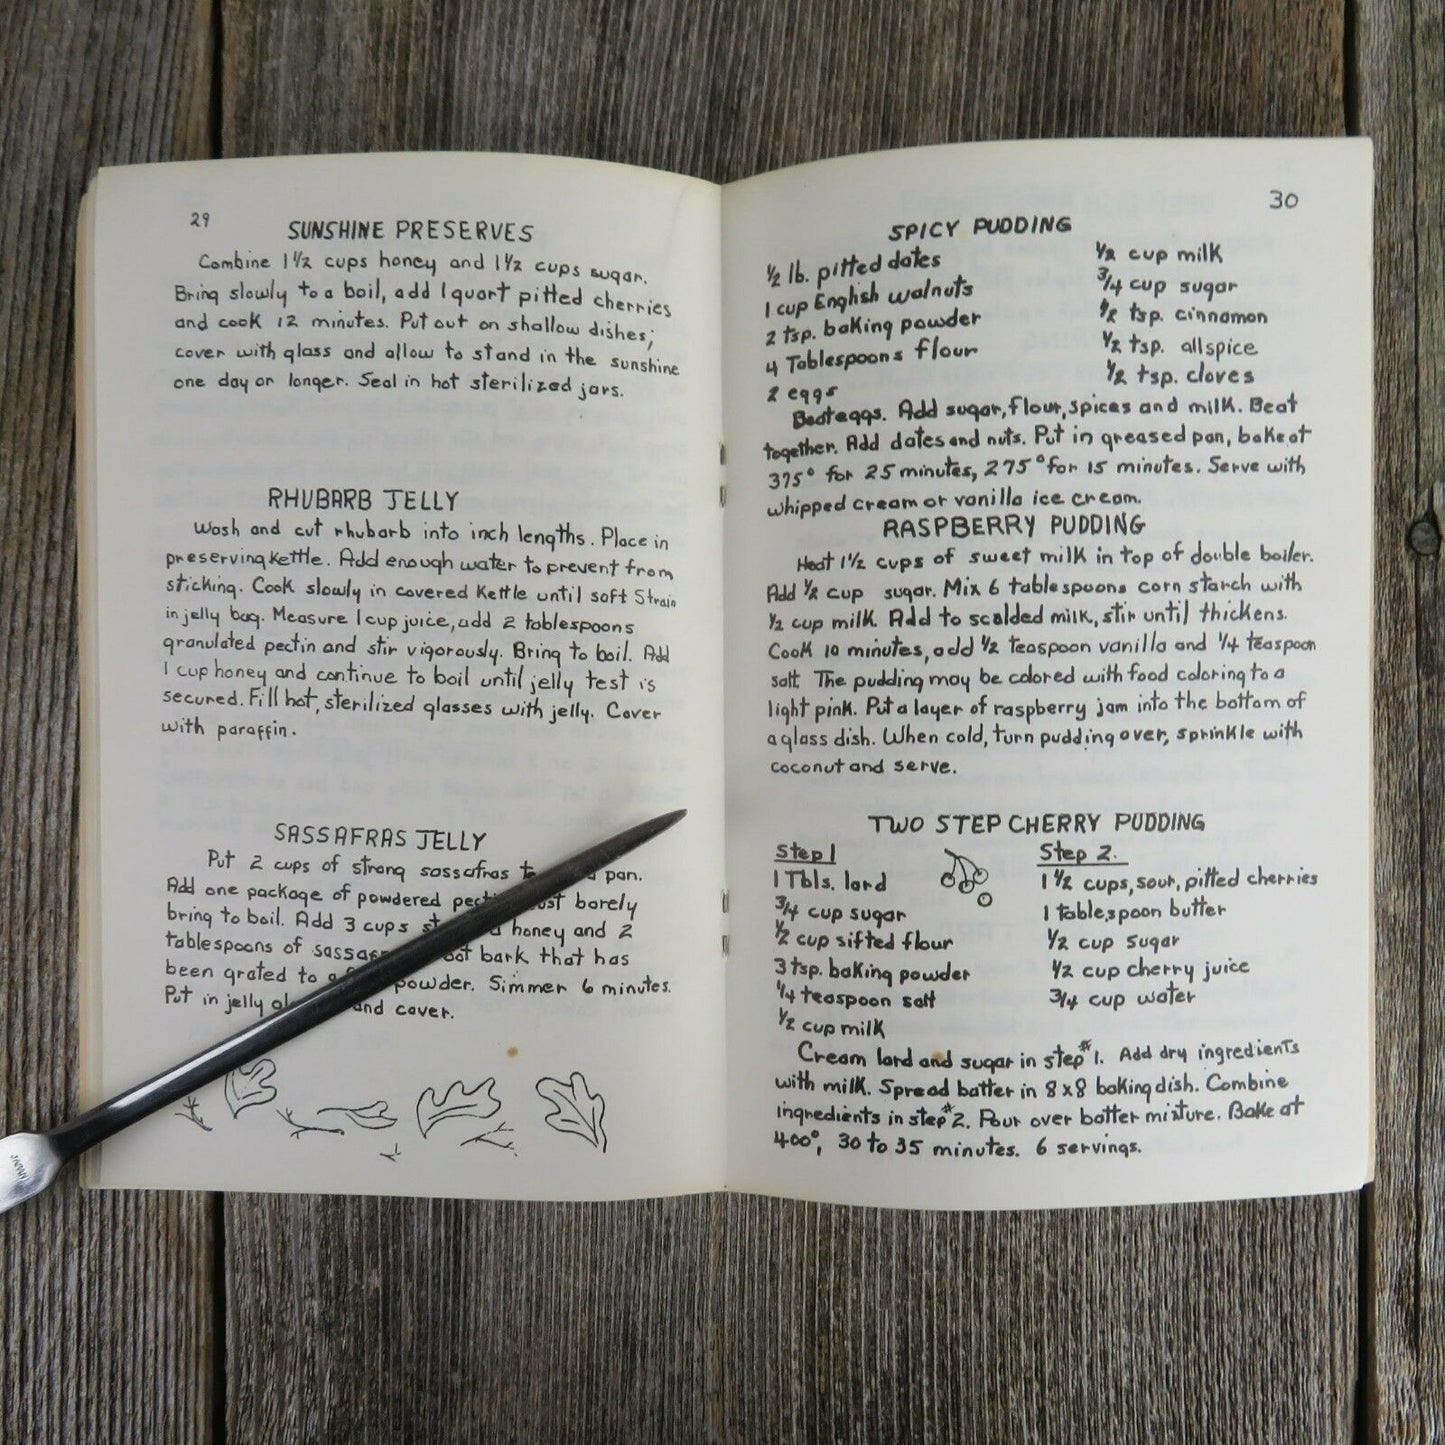 29
SUNSHINE PRESERVES
Combine 1 1/2 cups honey and 1 1/2 cups sugar.
Bring slowly to a boil, add 1 quart pitted cherries
and cook 12 minutes. Put out on shallow dishes;
cover with glass and allow to stand in the sunshine
one day or longer. Seal in hot sterilized jars.
RHUBARB JELLY
Wash and cut rhubarb into inch lengths. Place in
preserving kettle. Add enough water to prevent from
sticking. Cook slowly in covered kettle until soft Strain
in jelly bag. Measure 1 cup juice, add 2 tablespoons
granulated pectin and stir vigorously. Bring to boil. Add
1 cup honey and continue to boil until jelly test is
secured. Fill hot, sterilized glasses with jelly. Cover
with paraffin.
SASSAFRAS JELLY
Put 2 cups of strong sassafras pan.
Add one package of powdered barely
bring to boil. Add 3 cups honey and 2
tablespoons of bark that has
been grated to a powder. Simmer 6 minutes.
Put in jelly and cover.
JAPAN
30
SPICY PUDDING
1/2 lb. pitted dates
1 cup English walnuts
2 tsp. baking powder
4 Tablespoons flour
2 eggs
1/2 cup milk
3/4 cup sugar
1/2 tsp. cinnamon
1/2 tsp. allspice
1/2 tsp. cloves
Beat eggs. Add sugar, flour, spices and milk. Beat
together. Add dates and nuts. Put in greased pan, bake at
375° for 25 minutes, 275° for 15 minutes. Serve with
whipped cream or vanilla ice cream.
RASPBERRY PUDDING
Heat 1 1/2 cups of sweet milk in top of double boiler.
Add 1/2 cup sugar. Mix 6 tablespoons corn starch with
1/2 cup milk. Add to scalded milk, stir until thickens.
Cook 10 minutes, add 1/2 teaspoon vanilla and 1/4 teaspoon
salt. The pudding may be colored with food coloring to a
light pink. Put a layer of raspberry jam into the bottom of
a glass dish. When cold, turn pudding over, sprinkle with
coconut and serve.
TWO STEP CHERRY PUDDING
Step 1
1 Tbls. lard
3/4 cup sugar
1/2 cup sifted flour
3 tsp. baking powder
1/4 teaspoon salt
1/2 cup milk
Step 2.
1 1/2 cups, sour, pitted cherries
1 tablespoon butter
1/2 cup sugar
1/2 cup cherry juice
3/4 cup water
Cream lard and sugar in step #1. Add dry ingredients
with milk. Spread batter in 8x8 baking dish. Combine
ingredients in step #2. Pour over batter mixture. Bake at
400°, 30 to 35 minutes. 6 servings.